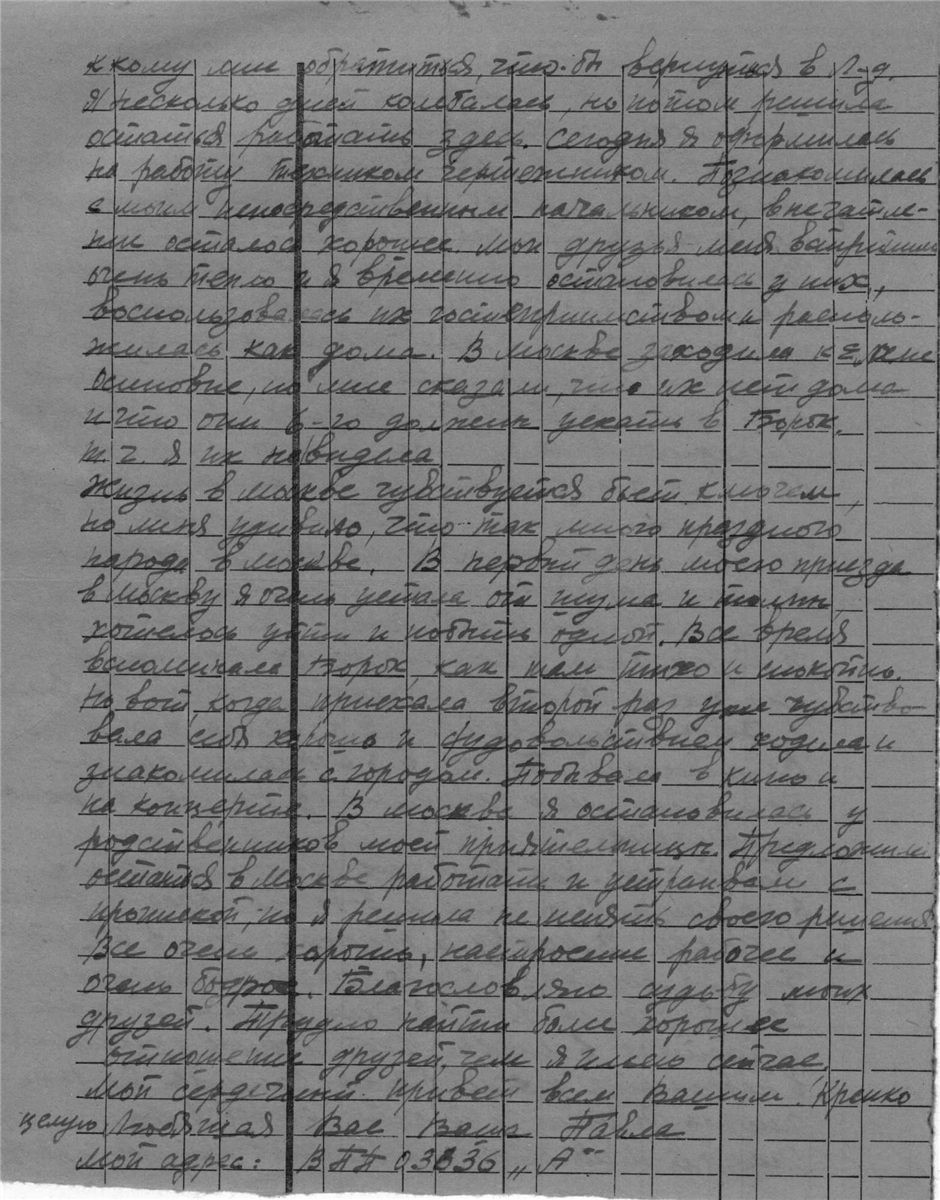 к кому мне обратиться, что-бы вернуться в Л-д.
Я несколько дней колебалась, но потом решила
остаться работать здесь. Сегодня я оформилась
на работу техником чертежником. Познакомилась
с моим непосредственным начальником, впечатле-
ние осталось хорошее. Мои друзья меня встретили
очень тепло и я временно остановилась у них,
воспользовалась их гостеприимством и располо-
жилась как дома. В Москве заходила к Елене
Осиповне, но мне сказали, что их нет дома
и что они 6-го должны уехать в Борок,
т.ч. я их не видела
Жизнь в Москве чувствуется бьет ключем,
но меня удивило, что так много праздного
народа в Москве. В первый день моего приезда
в Москву я очень устала от шума и толпы
хотелось уйти и побыть одной. Все время
вспоминала Борок, как там тихо и спокойно.
Но вот, когда приехала второй раз уже чувство-
вала себя хорошо и с удовольствием ходила и
знакомилась с городом. Побывала в кино и
на концерте. В Москве я остановилась у
родственников моей приятельницы. Предложили
остаться в Москве работать и устраивали с
пропиской, но я решила не менять своего решения
Все очень хорошо, настроение рабочее и
очень бодрое. Благословляю судьбу моих
друзей. Трудно найти более хорошее
отношение друзей, чем я имею сейчас.
Мой сердечный привет всем Вашим. Крепко
целую Любящая Вас Ваша Павла
Мой адрес: ВПП 03336 „А"